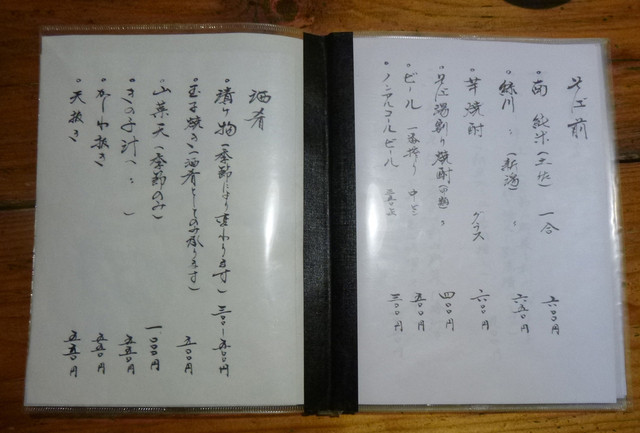 そば前
。南 純米(土佐) 一合 六〇〇円
。緑川 〃 (新潟) 〃 六五〇円
芋焼酎 グラス 六〇〇円
。そば湯割り焼酎(甲類) 〃 四〇〇円
。ビール 一番搾り 中ビン 五〇〇円
。ノンアルコールビール 三〇〇円
酒肴
。漬け物(季節により変わります) 三〇〇〜五〇〇円
。玉子焼き(酒肴としてのみ承ります) 五〇〇円
。山菜天(季節のみ) 一〇〇〇円
。きのこ汁(〃) 五五〇円
。かしわ抜き 五五〇円
。天抜き 五五〇円